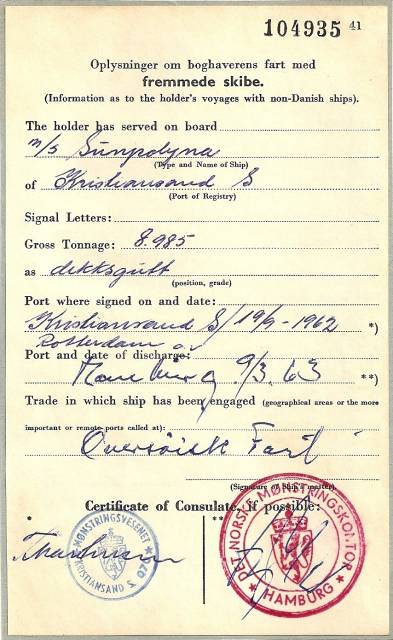 104935 41
Oplysninger om boghaverens fart med
fremmede skibe.
(Information as to the holder's voyages with non-Danish ships).
The holder has served on board
m/s Sunpolyna
(Type and Name of Ship)
of Kristiansand S
(Port of Registry)
Signal Letters:
Gross Tonnage: 8.985
as dekksgutt
(position, grade)
Port where signed on and date:
Kristiansand S/ 19/9-1962 *)
Rotterdam
Port and date of discharge:
Hamburg 9/3.63 **)
Trade in which ship has been engaged (geographical areas or the more
important or remote ports called at):
Oversöisk Fart
(Signature of Ship's master)
Certificate of Consulate, if possible:
* **
MØNSTRINGSVESENET
KRISTIANSAND S
DET NORSKE MØNSTRINGSKONTOR
HAMBURG